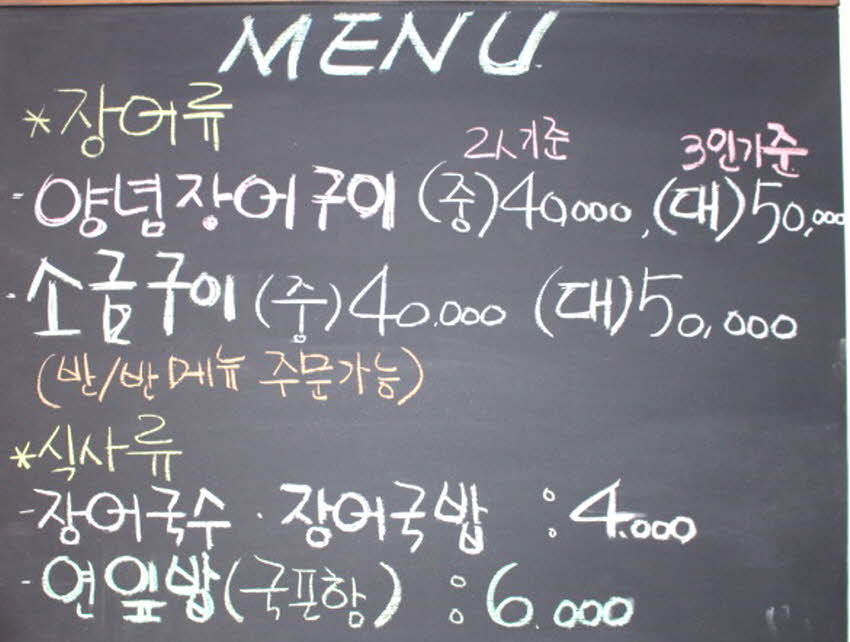 MENU
*장어류
2人기준 3인기준
- 양념장어구이 (중)40,000, (대)50,000
· 소금구이 (중)40.000 (대)50,000
(반/반메뉴 주문가능)
*식사류
- 장어국수 · 장어국밥 : 4.000
- 연잎밥(국포함) : 6.000